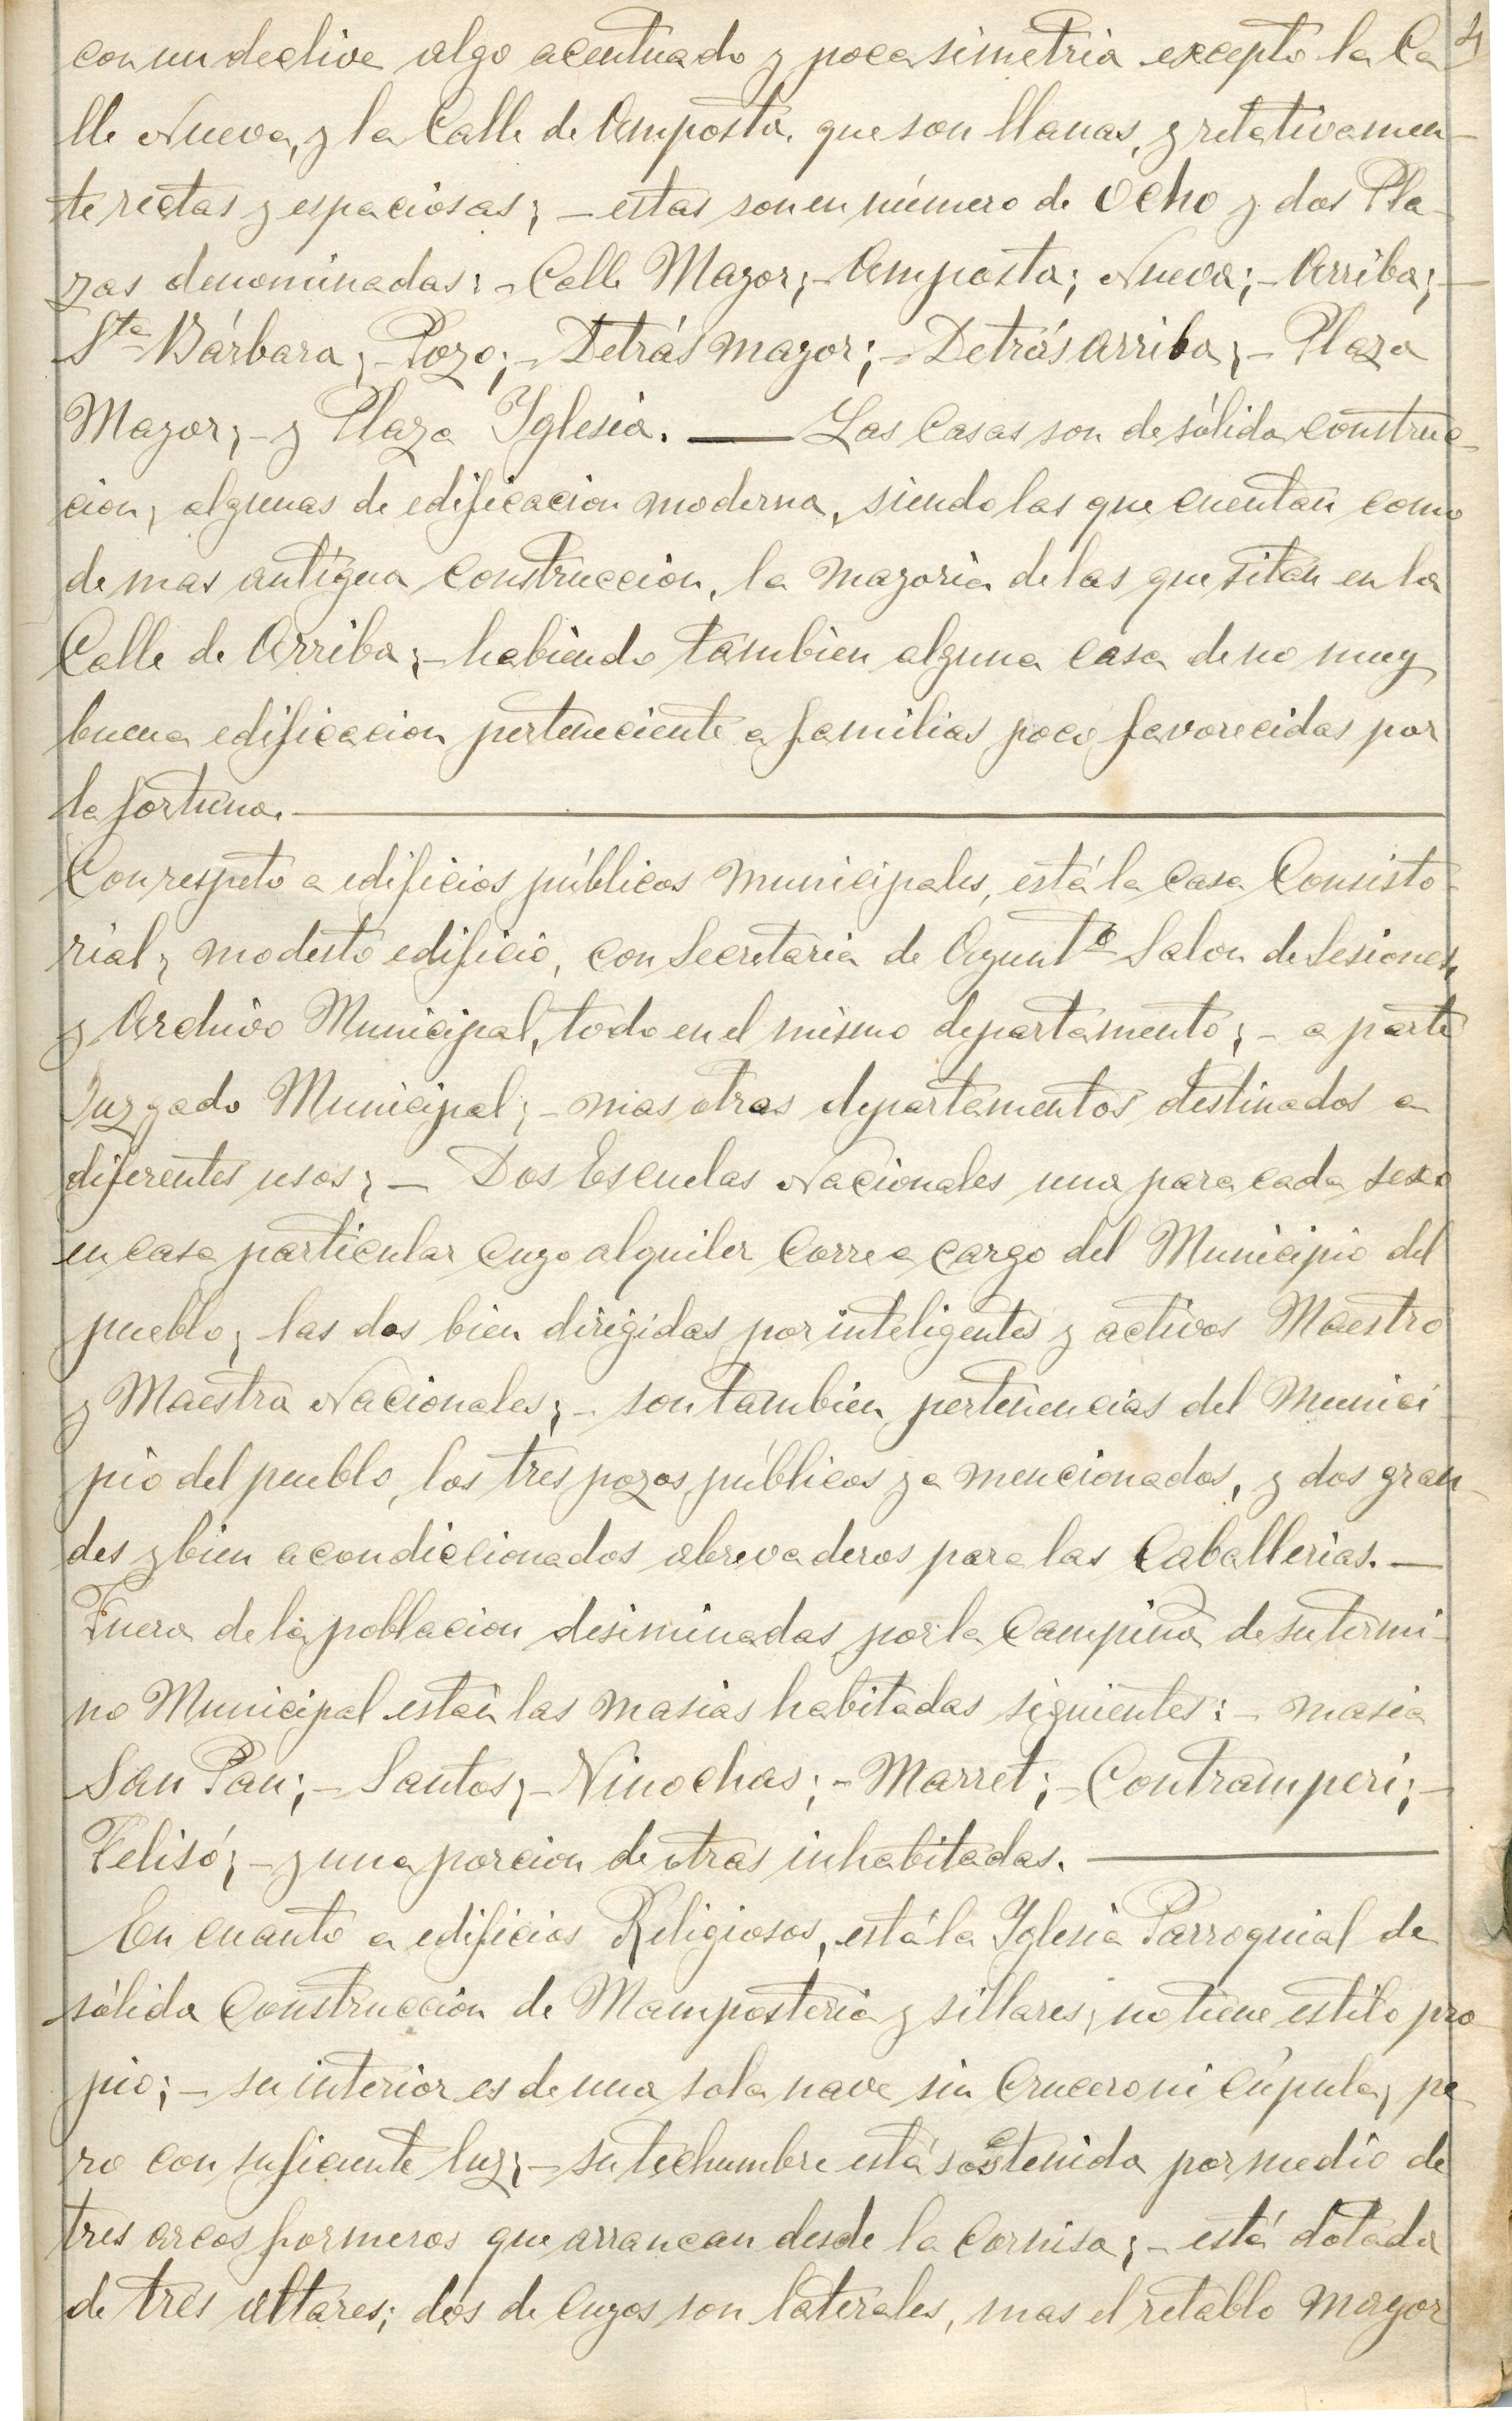 4
con un declive algo acentuado y poca simetria excepto la Ca
lle Nueva, y la Calle de Amposta que son llanas, y relativamen-
te rectas y espaciosas; - estas son en número de Ocho y dos Pla-
zas denominadas: - Calle Mayor; - Amposta; Nueva; - Arriba; -
Sta Bárbara; - Pozo; - Detrás mayor; - Detrás arriba; - Plaza
Mayor; - y Plaza Iglesia. — Las Casas son de sólida construc-
cion, algunas de edificacion moderna, siendo las que cuentan como
de mas antígua construccion, la mayoria de las que sitan en la
Calle de Arriba; - habiendo tambien alguna casa de no muy
buena edificacion perteneciente a familias poco favorecidas por
la fortuna. —
Con respeto a edificios públicos municipales, está la Casa Consisto-
rial, modesto edificio, con Secretaria de Ayuntº Salon de Sesiones
y Archivo Municipal, todo en el mismo departamento; - a parte
Juzgado Municipal; - mas otras departamentos destinados a
diferentes usos; - Dos Escuelas Nacionales una para cada sexo
en casa particular cuyo alquiler corre a cargo del Municipio del
pueblo, las dos bien dirigidas por inteligentes y activos Maestro
y Maestra Nacionales; - son tambien pertenencias del Munici-
pio del pueblo, los tres pozos públicos ya mencionados, y dos gran-
des y bien acondiccionados abrevaderos para las Caballerias. —
Fuera de la poblacion diseminadas por la Campiña de su termi-
no Municipal están las masias habitadas siguientes: - masia
San Pau; - Santos; - Ninochas; - Marret; - Contramperi; -
Felisó; - y una porcion de otras inhabitadas. —
En cuanto a edificios Religiosos, está la Iglesia Parroquial de
sólida Construccion de Mamposteria y sillares, no tiene estilo pro
pio; - su interior es de una sola nave sin Crucero ni Cúpula, pe
ro con suficiente luz; - su techumbre está sostenida por medio de
tres arcos formeros que arrancan desde la Cornisa; - está dotada
de tres altares; dos de cuyos son laterales, mas el retablo mayor